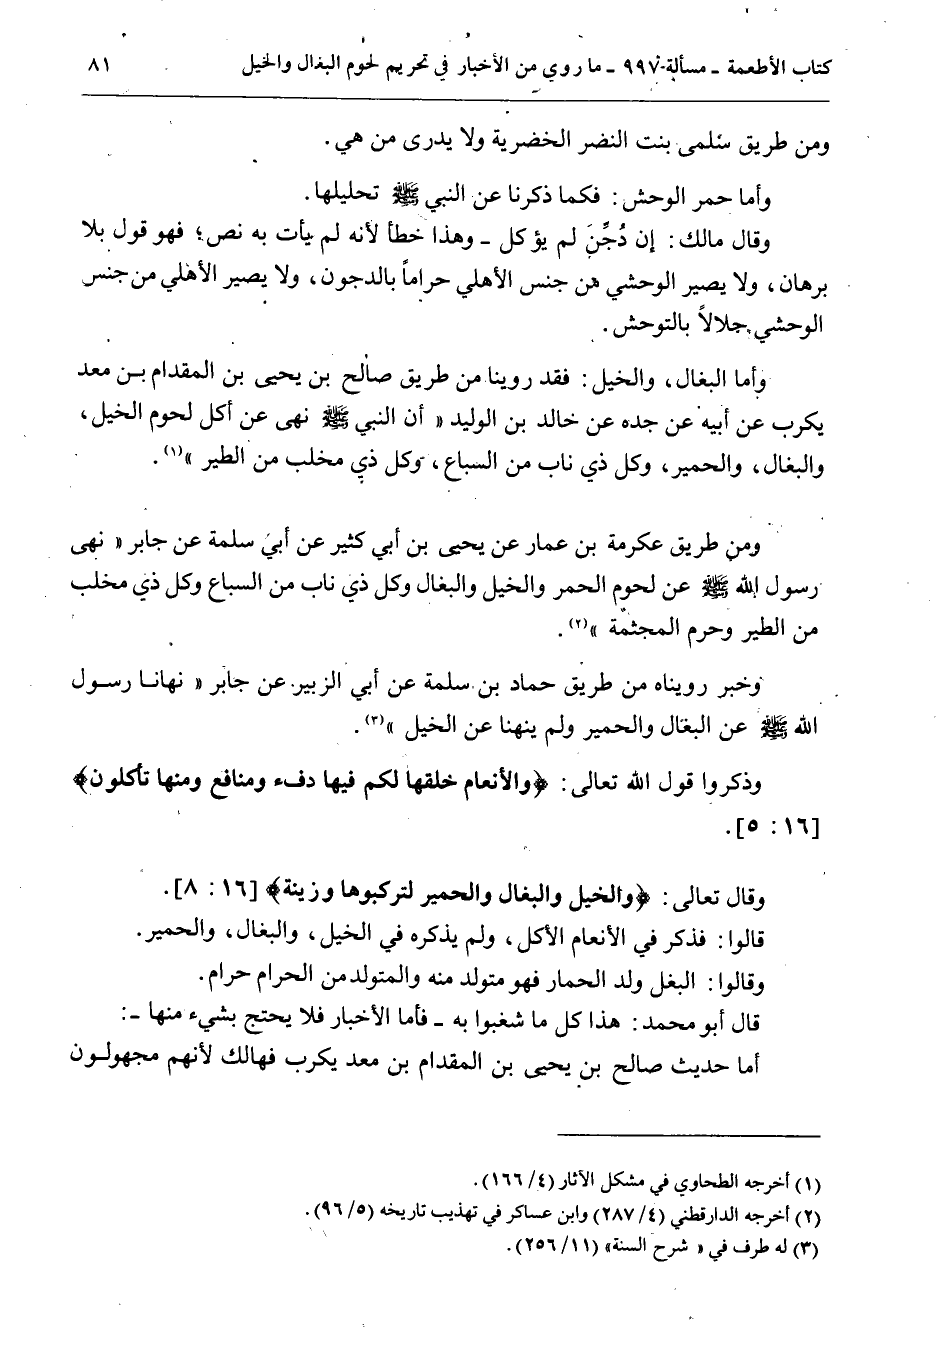 كتاب الأطعمة ـ مسألة ٩٩٧ ـ ما روي من الأخبار في تحريم لحوم البغال والخيل ٨١
ومن طريق سلمى بنت النضر الخضرية ولا يدرى من هي.
وأما حمر الوحش: فكما ذكرنا عن النبي ﷺ تحليلها.
وقال مالك: إن دُجِّنَ لم يؤكل ـ وهذا خطأ لأنه لم يأت به نص؛ فهو قول بلا
برهان، ولا يصير الوحشي من جنس الأهلي حراماً بالدجون، ولا يصير الأهلي من جنس
الوحشي حلالاً بالتوحش.
وأما البغال، والخيل: فقد روينا من طريق صالح بن يحيى بن المقدام بـن معد
يكرب عن أبيه عن جده عن خالد بن الوليد « أن النبي ﷺ نهى عن أكل لحوم الخيل،
والبغال، والحمير، وكل ذي ناب من السباع، وكل ذي مخلب من الطير »(١).
ومن طريق عكرمة بن عمار عن يحيى بن أبي كثير عن أبي سلمة عن جابر « نهى
رسول الله ﷺ عن لحوم الحمر والخيل والبغال وكل ذي ناب من السباع وكل ذي مخلب
من الطير وحرم المجثمة »(٢).
وخبر رويناه من طريق حماد بن سلمة عن أبي الزبير عن جابر « نهانـا رسـول
الله ﷺ عن البغال والحمير ولم ينهنا عن الخيل »(٣).
وذكروا قول الله تعالى: ﴿والأنعام خلقها لكم فيها دفء ومنافع ومنها تأكلون﴾
[١٦ : ٥].
وقال تعالى: ﴿والخيل والبغال والحمير لتركبوها وزينة﴾ [١٦ : ٨].
قالوا: فذكر في الأنعام الأكل، ولم يذكره في الخيل، والبغال، والحمير.
وقالوا: البغل ولد الحمار فهو متولد منه والمتولد من الحرام حرام.
قال أبو محمد: هذا كل ما شغبوا به ـ فأما الأخبار فلا يحتج بشيء منها ـ:
أما حديث صالح بن يحيى بن المقدام بن معد يكرب فهالك لأنهم مجهولـون
(١) أخرجه الطحاوي في مشكل الآثار (٤/ ١٦٦).
(٢) أخرجه الدارقطني (٤/ ٢٨٧) وابن عساكر في تهذيب تاريخه (٥/ ٩٦).
(٣) له طرف في « شرح السنة» (١١/ ٢٥٦).